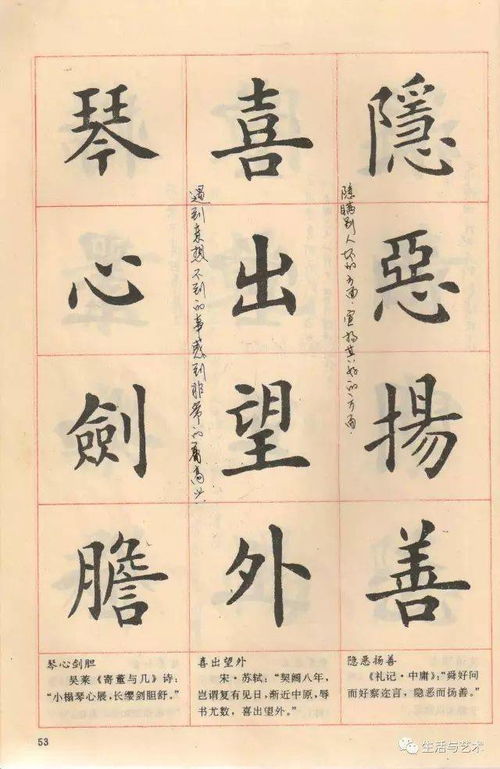 隱惡揚善
喜出望外
琴心劍膽
隐瞒别人坏的方面，宣扬其好的方面，
遇到意想不到的事感到非常的高兴
琴心剑胆
吴莱《寄董与几》诗：
“小榻琴心展，长缨剑胆舒。”
喜出望外
宋·苏轼：“契阔八年，
岂谓复有见日，渐近中原，辱
书尤数，喜出望外。”
隐恶扬善
《礼记·中庸》：“舜好问
而好察迩言，隐恶而扬善。”
53
生活与艺术